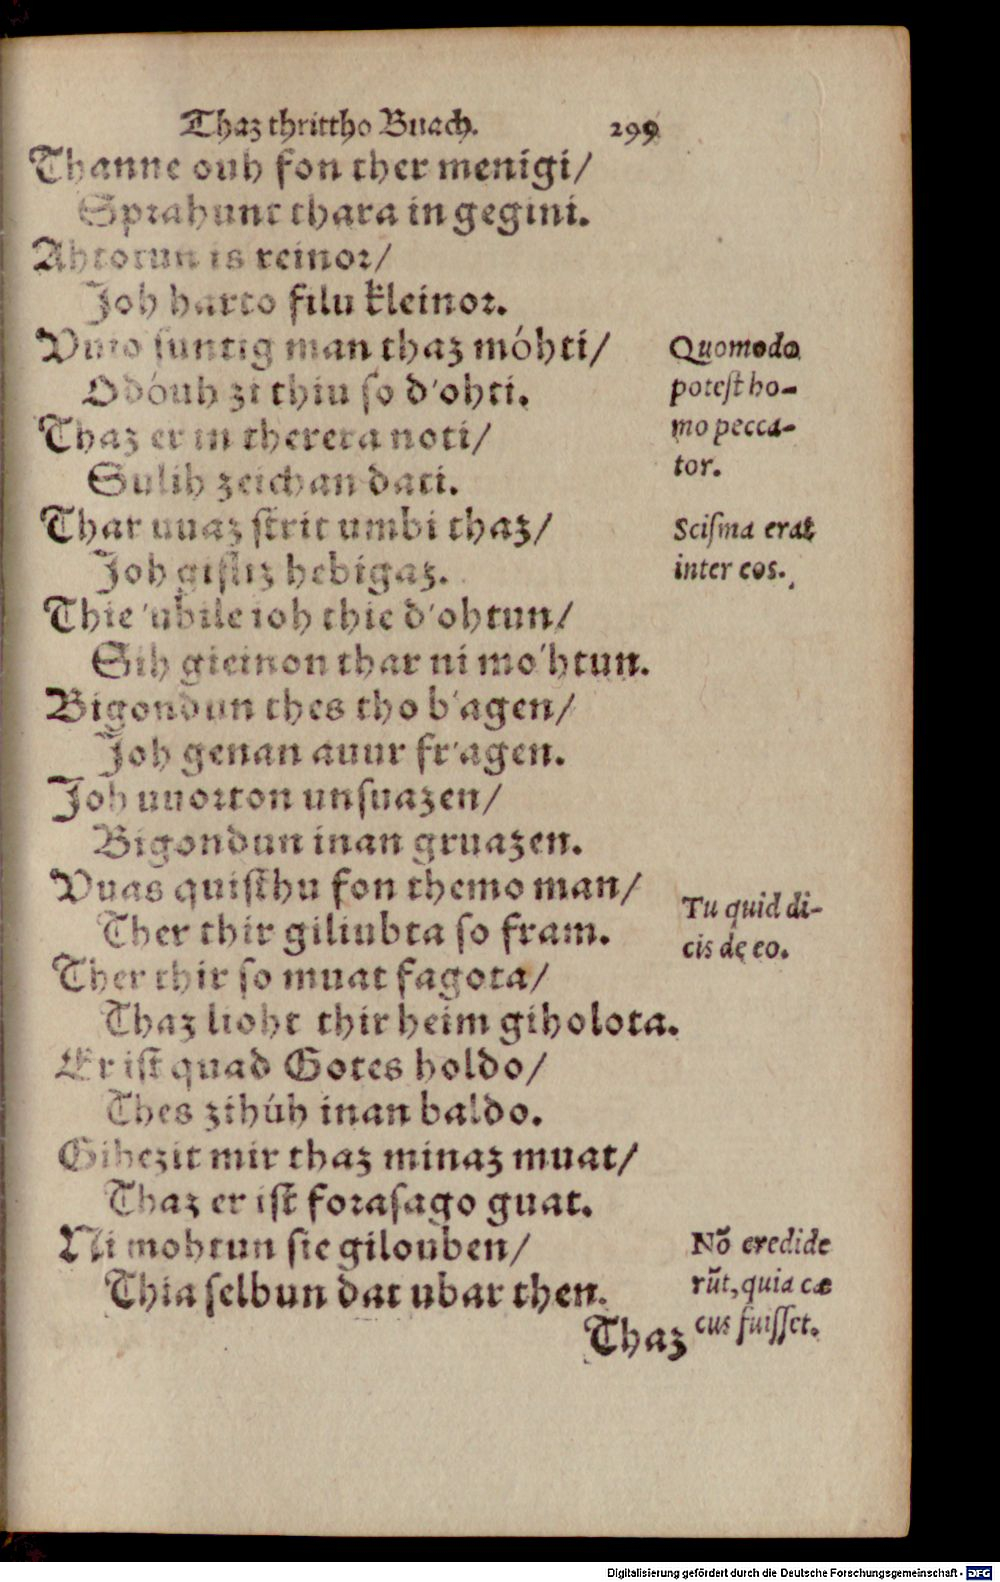 Thaz thrittho Buach. 299
Thanne ouh fon ther menigi/
Sprahunt thara in gegini.
Ahtotun is reinor/
Joh harto filu kleinor.
Vuio suntig man thaz móhti/
Odóuh zi thiu so d'ohti.
Thaz er in therera noti/
Sulih zeichan dati.
Thar uuaz strit umbi thaz/
Joh gisliz hebigaz.
Thie 'ubile ioh thie d'ohtun/
Sih gieinon thar ni mo'htun.
Bigondun thes tho b'agen/
Joh genan auur fr'agen.
Joh uuorton unsuazen/
Bigondun inan gruazen.
Vuas quisthu fon themo man/
Ther thir giliubta so fram.
Ther thir so muat fagota/
Thaz lioht thir heim giholota.
Er ist quad Gotes holdo/
Thes zihúh inan baldo.
Gihezit mir thaz minaz muat/
Thaz er ist forasago guat.
Ni mohtun sie gilouben/
Thia selbun dat ubar then.
Thaz
Quomodo
potest ho-
mo pecca-
tor.
Scisma erat
inter eos.
Tu quid di-
cis de eo.
Nō credide
rūt, quia cæ
cus fuisset.
Digitalisierung gefördert durch die Deutsche Forschungsgemeinschaft - DFG